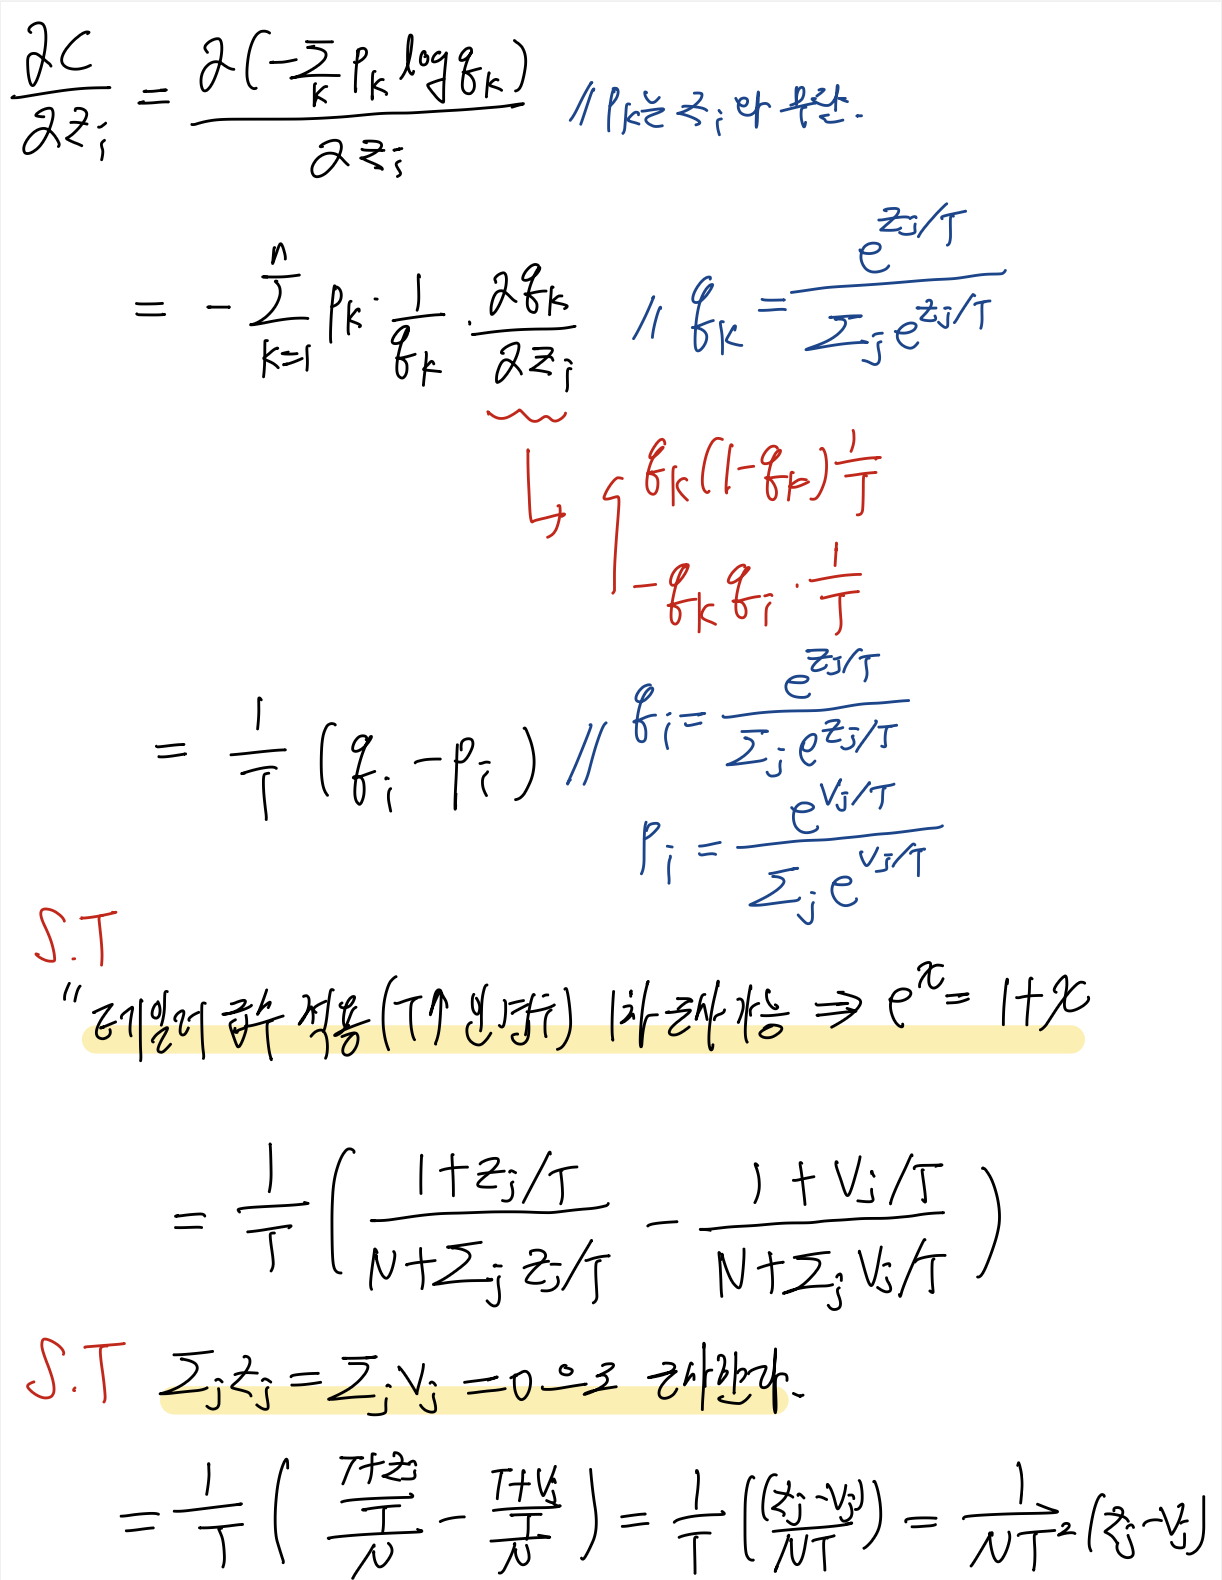 ∂C/∂z_i = ∂(-Σ_k p_k log q_k)/∂z_i // p_k는 z_i와 무관.
= - Σ_{k=1}^{n} p_k · 1/q_k · ∂q_k/∂z_i // q_k = e^{z_j/T} / Σ_j e^{z_j/T}
↳ { q_k(1-q_k) 1/T
-q_k q_i · 1/T
= 1/T (q_i - p_i) // q_i = e^{z_j/T} / Σ_j e^{z_j/T}
p_i = e^{v_j/T} / Σ_j e^{v_j/T}
S.T
" 테일러 급수 적용(T↑ 일 경우) 1차 근사 가능 ⇒ e^x = 1+x
= 1/T ( (1+z_j/T) / (N+Σ_j z_j/T) - (1+v_j/T) / (N+Σ_j v_j/T) )
S.T Σ_j z_j = Σ_j v_j = 0 으로 근사한다.
= 1/T ( ((T+z_j)/T)/N - ((T+v_j)/T)/N ) = 1/T ((z_j-v_j)/NT) = 1/NT² (z_j-v_j)